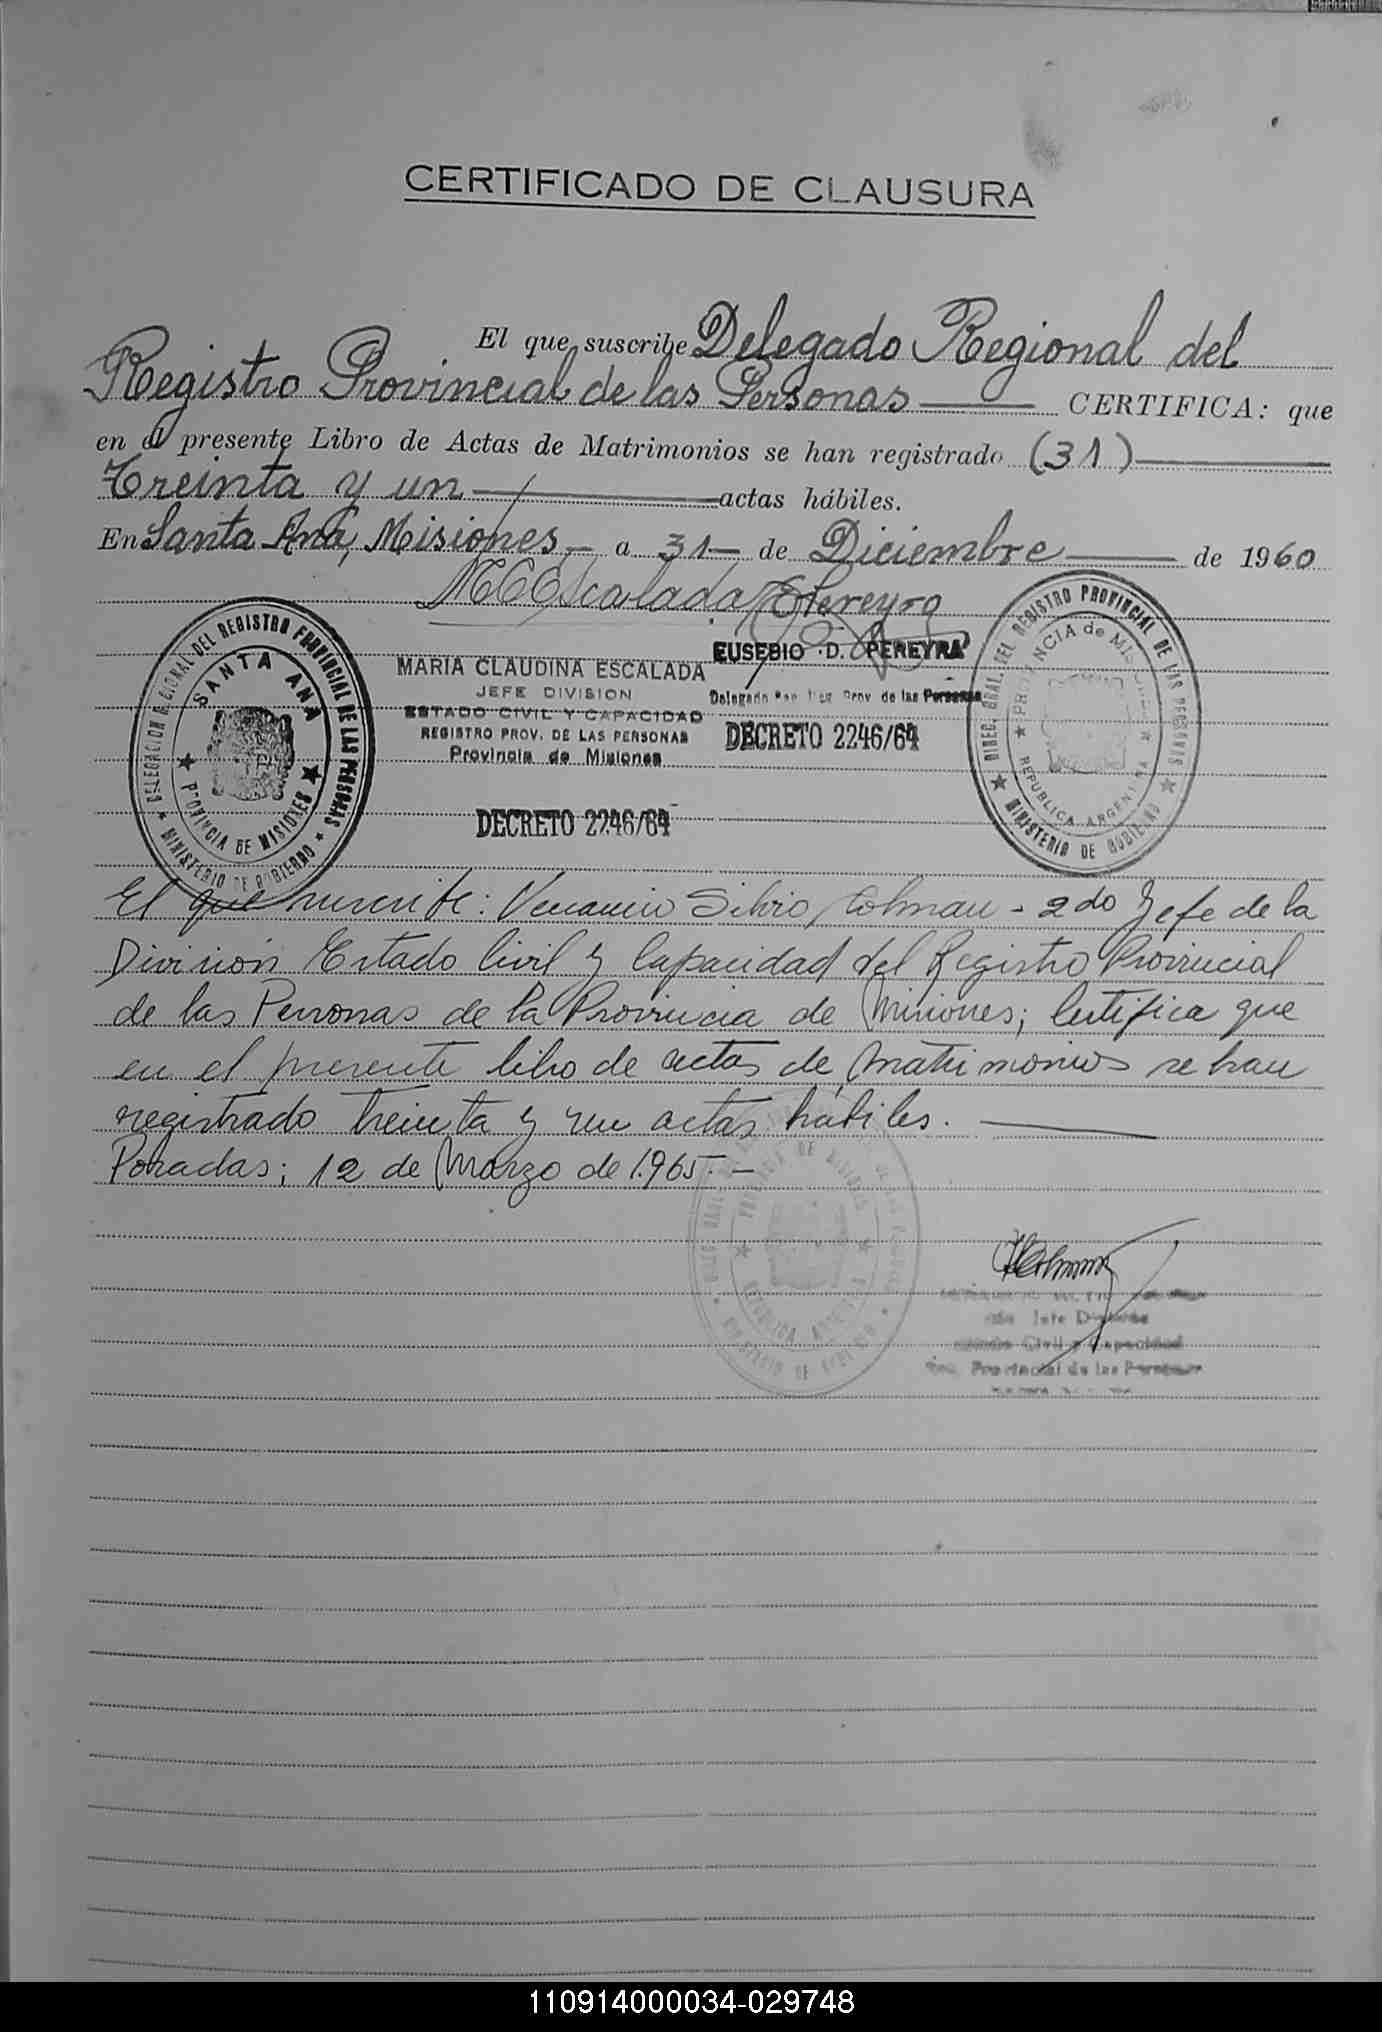 CERTIFICADO DE CLAUSURA
El que suscribe Delegado Regional del
Registro Provincial de las Personas CERTIFICA: que
en el presente Libro de Actas de Matrimonios se han registrado (31)
Treinta y un actas hábiles.
En Santa Ana, Misiones, - a 31 - de Diciembre de 1960
MCEscalada EPereyra
DELEGACION REGIONAL DEL REGISTRO PROVINCIAL DE LAS PERSONAS
SANTA ANA
PROVINCIA DE MISIONES
MINISTERIO DE GOBIERNO
MARIA CLAUDINA ESCALADA
JEFE DIVISION
ESTADO CIVIL Y CAPACIDAD
REGISTRO PROV. DE LAS PERSONAS
Provincia de Misiones
DECRETO 2246/64
EUSEBIO D. PEREYRA
Delegado Reg. Prov. de las Personas
DECRETO 2246/64
DIREC. GRAL. DEL REGISTRO PROVINCIAL DE LAS PERSONAS
PROVINCIA de MISIONES
REPUBLICA ARGENTINA
MINISTERIO DE GOBIERNO
El que suscribe: Venancio Silvio Colman - 2do Jefe de la
División Estado Civil y Capacidad del Registro Provincial
de las Personas de la Provincia de Misiones; Certifica que
en el presente libro de actas de matrimonios se han
registrado treinta y un actas hábiles.
Posadas; 12 de Marzo de 1.965.-
PROVINCIA DE MISIONES
REPUBLICA ARGENTINA
MINISTERIO DE GOBIERNO
Jefe División
Civil y Capacidad
Provincial de las Personas
110914000034-029748